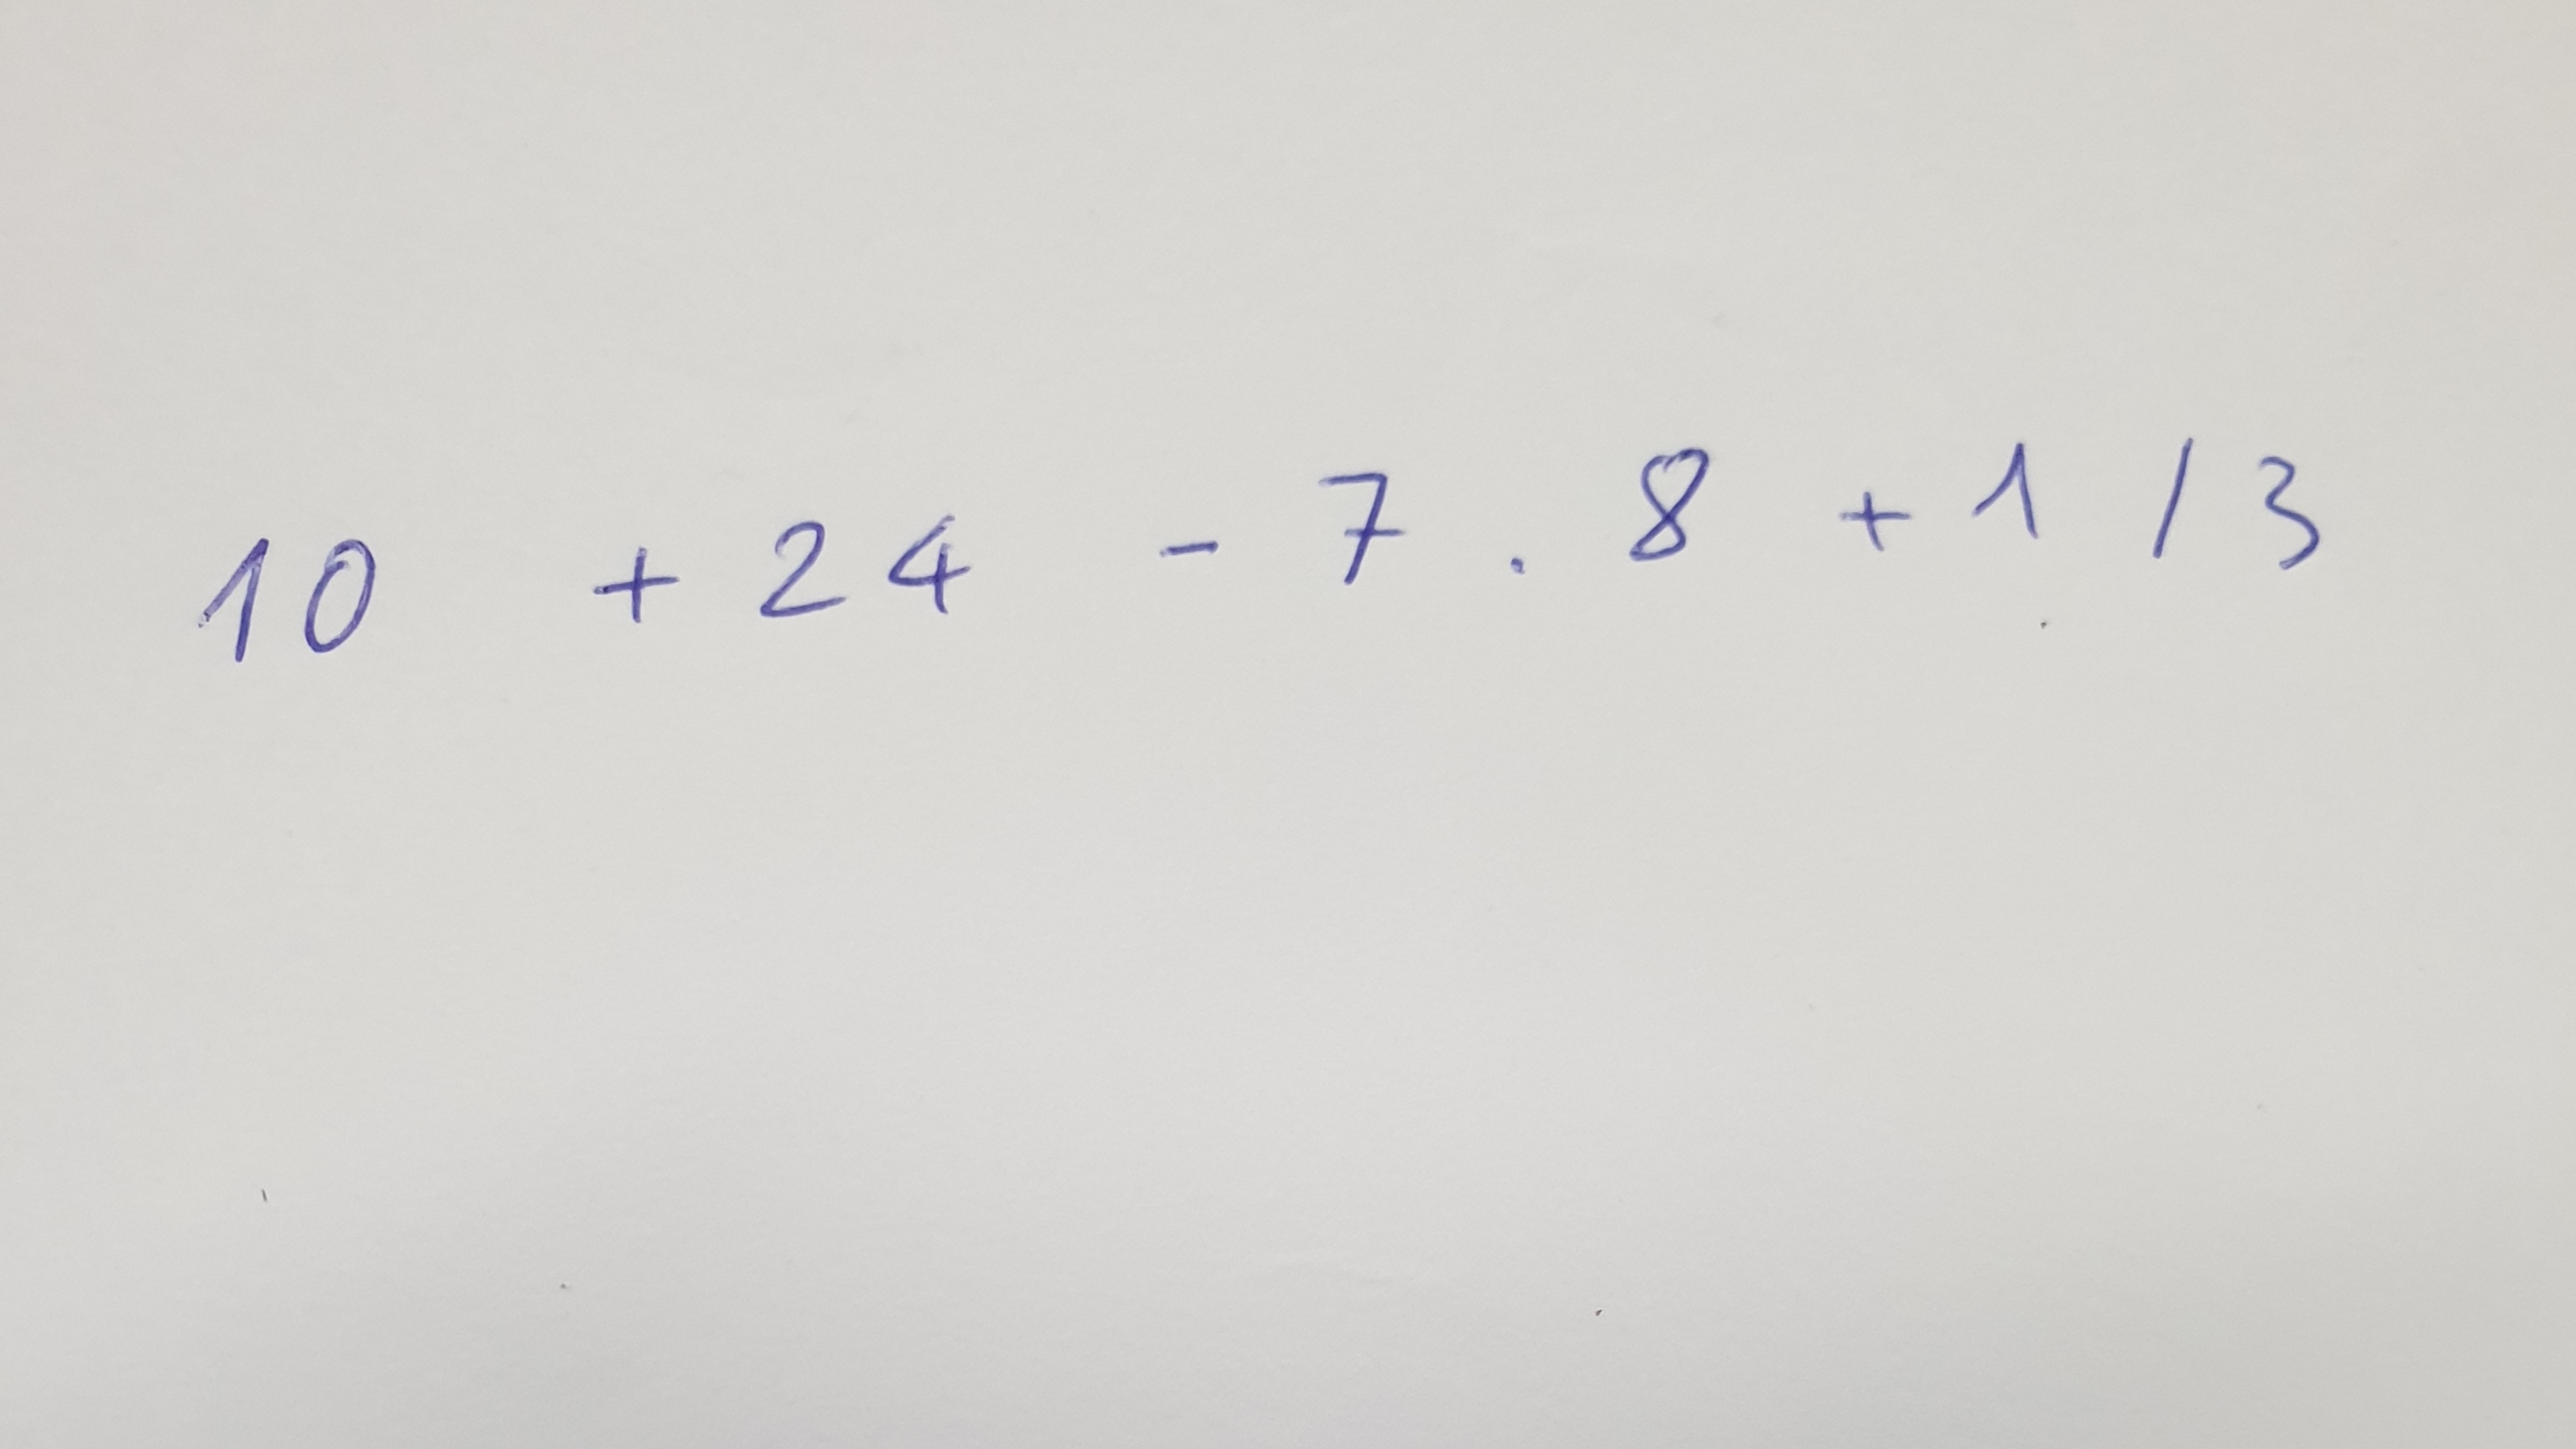 10 + 24 - 7 . 8 + 1 / 3